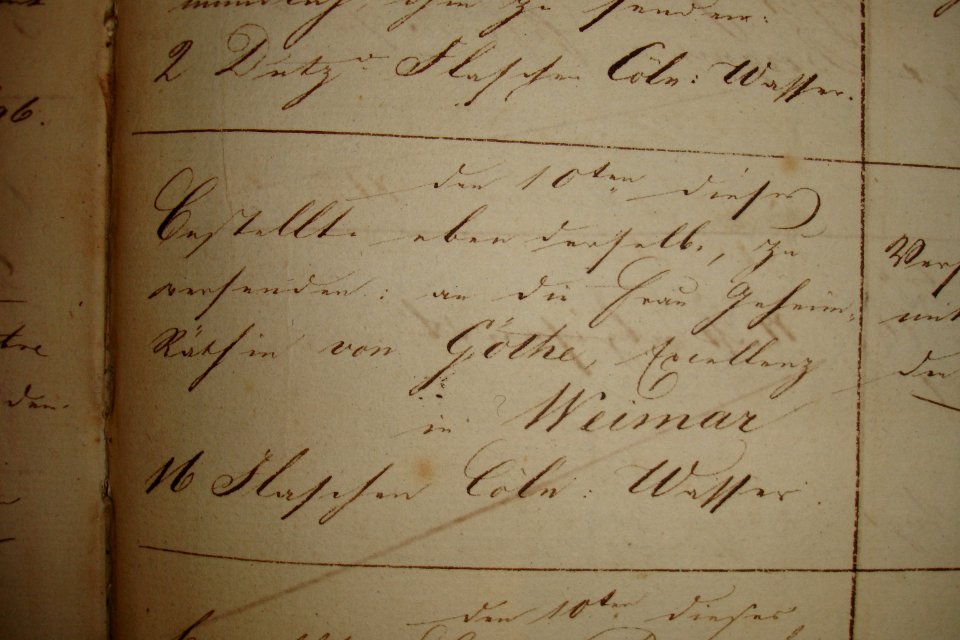 mündlich, ihm zu senden:
2 Dutzd Flaschen Cöln: Wasser.
den 10ten dieses
Bestellte ebenderselbe, zu
versenden: an die Frau Geheim-
Räthin von Göthe, Excellenz
in Weimar
16 Flaschen Cöln: Wasser.
den 10ten dieses
96.
den
mit
den